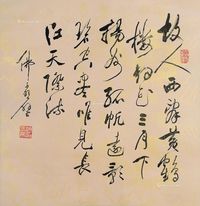 故人西辭黃鶴
樓烟花三月下
揚州孤帆遠影
碧空盡唯見長
江天際流